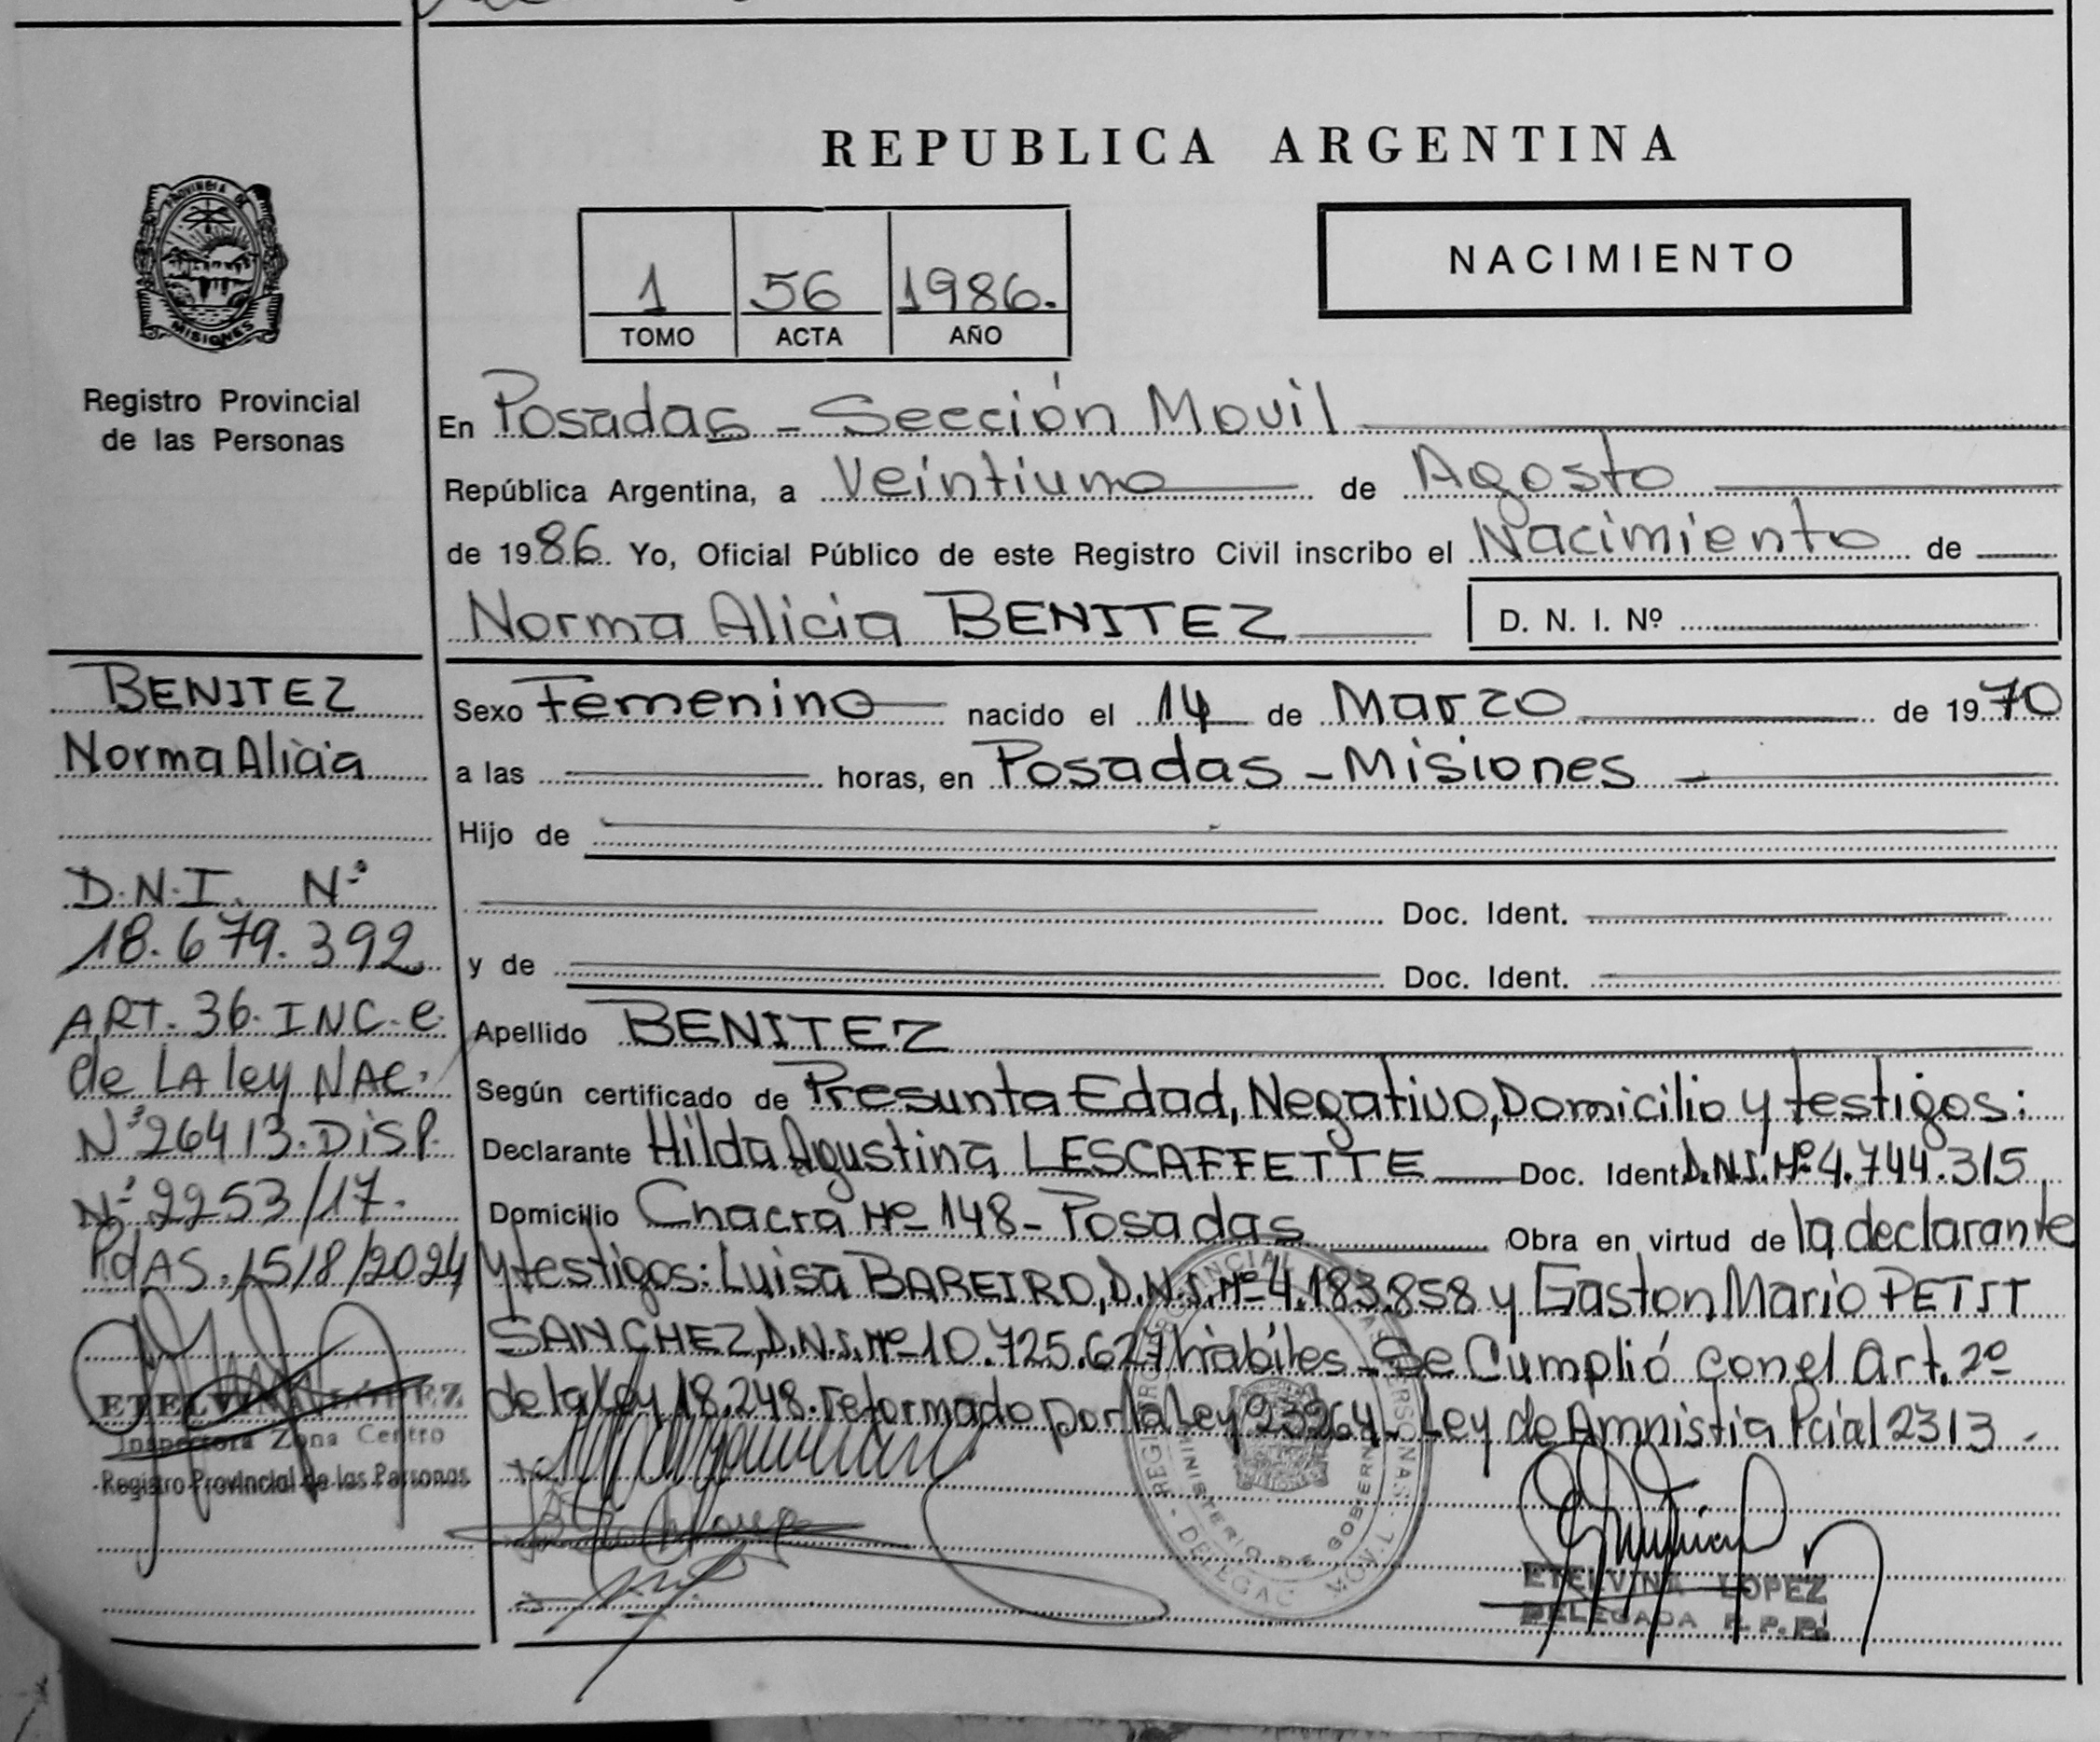 REPUBLICA ARGENTINA
PROVINCIA DE
MISIONES
Registro Provincial
de las Personas
1 56 1986.
TOMO ACTA AÑO
NACIMIENTO
En Posadas - Sección Movil
República Argentina, a Veintiuno de Agosto
de 1986. Yo, Oficial Público de este Registro Civil inscribo el Nacimiento de
Norma Alicia BENITEZ D. N. I. Nº
BENITEZ
Norma Alicia
D.N.I. Nº
18.679.392
ART. 36. INC. e.
de LA ley NAC.
Nº 26413. DISP.
Nº 2253/17.
PdAS. 15/8/2024
ETELVINA LÓPEZ
Inspectora Zona Centro
Registro Provincial de las Personas
Sexo Femenino nacido el 14 de Marzo de 1970
a las horas, en Posadas - Misiones -
Hijo de
Doc. Ident.
y de Doc. Ident.
Apellido BENITEZ
Según certificado de Presunta Edad, Negativo, Domicilio y testigos:
Declarante Hilda Agustina LESCAFFETTE Doc. Ident. D.N.I. Nº 4.744.315
Domicilio Chacra Nº 148 - Posadas Obra en virtud de la declarante
y testigos: Luisa BAREIRO, D.N.I. Nº 4.183.858 y Gaston Mario PETIT
SANCHEZ, D.N.I. Nº 10.725.627 hábiles - Se Cumplió con el Art. 2º
de la Ley 18.248. reformado por la Ley 23264 - Ley de Amnistia Pcial 2313 -
ETELVINA LOPEZ
DELEGADA R.P.P.